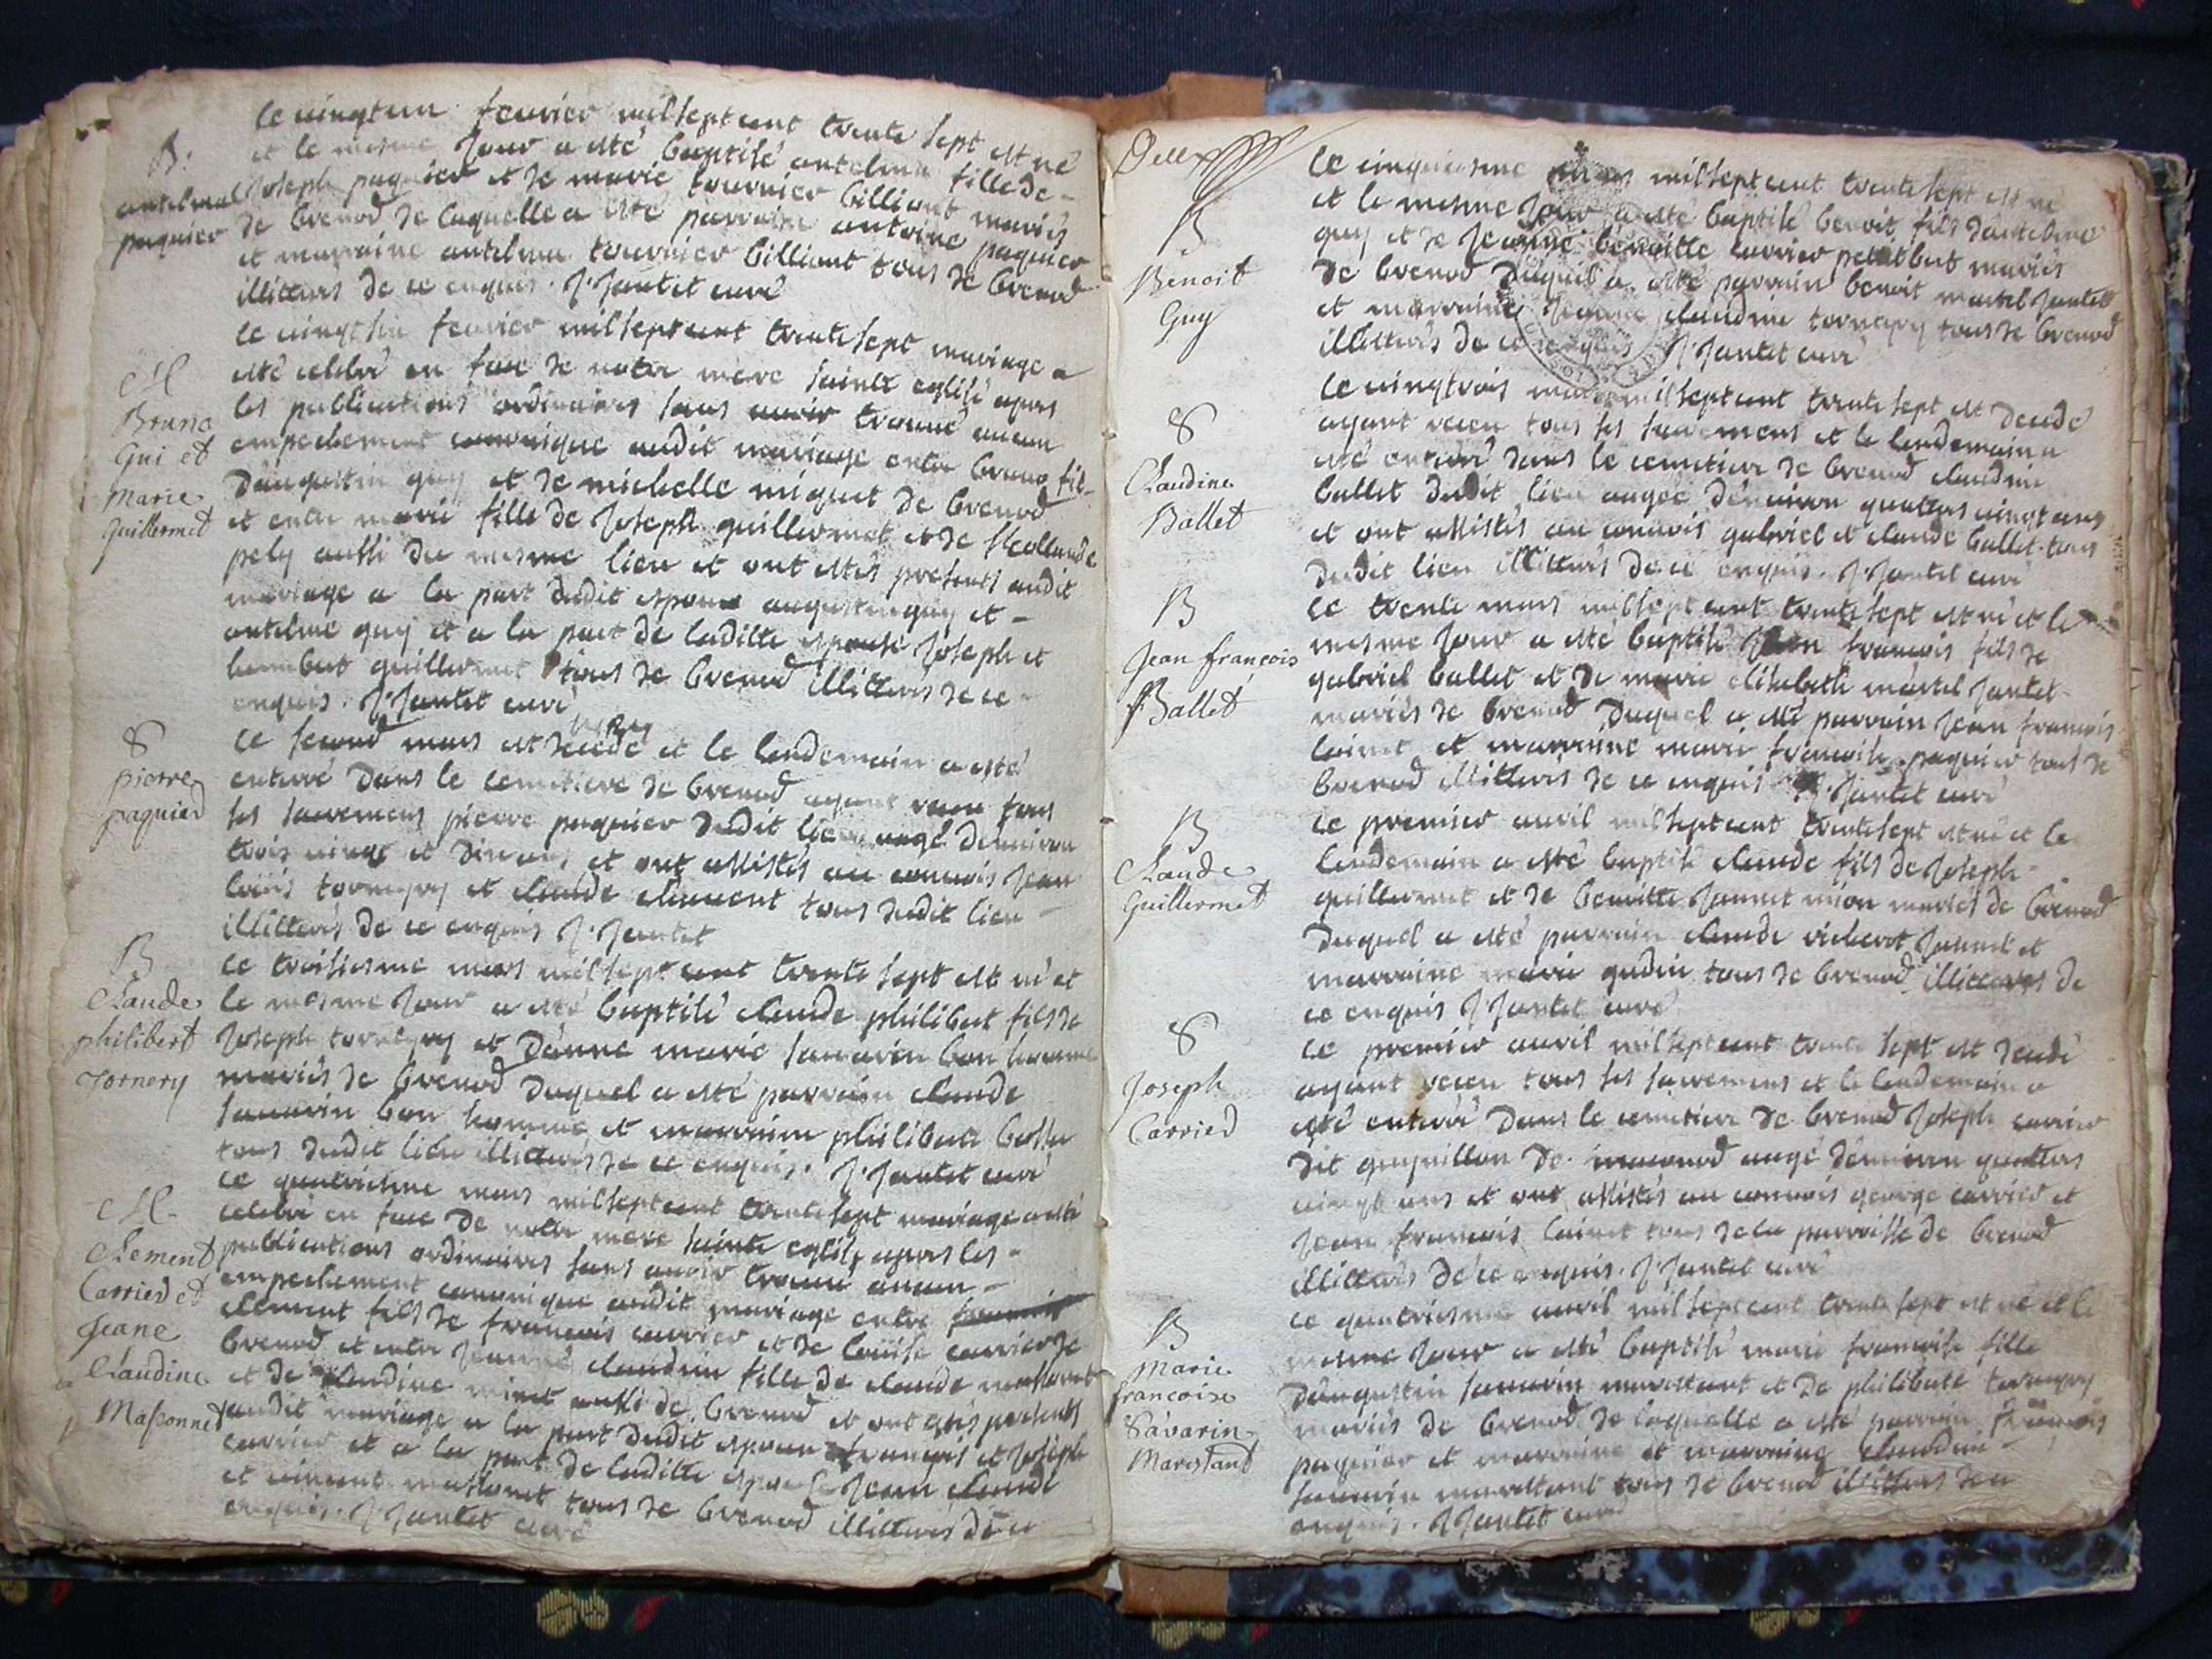 le vingtun fevrier mil sept cent trente sept est né
et le mesme jour a esté baptisé antelma fille de
B.
antelma
paquier
joseph paquier et de marie tournier billiant mariés
de brenod de laquelle a esté parrain antoine paquier
et marraine antelma tournier billiant tous de brenod
illitterés de ce enquis. J. Jantet curé
le vingt fevrier mil sept cent trente sept mariage a
esté celebré en face de notre mere sainte eglise apres
les publications ordinaires sans avoir trouvé aucun
empechement canonique audit mariage entre bruno fils
d'augustin guy et de michelle miguet de brenod
et entre marie fille de joseph guillermet et de
pely aussi du mesme lieu et ont estés presents audit
mariage a la part dudit epoux augustin guy et
antelme guy et a la part de laditte epouse joseph et
humbert guillermet tous de brenod illitterés de ce
enquis. J. Jantet curé
M
Bruno
Gui et
Marie
Guillermet
le second mars est decedé et le lendemain a esté
enterré dans le cemetiere de brenod ayant receu tous
ses sacremens pierre paquier dudit lieu aagé d'environ
trois vingt et dix ans et ont assistés au convois jean
louis tornery et claude clement tous dudit lieu
illitterés de ce enquis J. Jantet
S
pierre
paquier
le troisiesme mars mil sept cent trente sept est né et
le mesme jour a esté baptisé claude philibert fils de
joseph tornery et d'anne marie savarin bon homme
mariés de brenod duquel a esté parrain claude
savarin bon homme et marraine philiberte
tous dudit lieu illitterés de ce enquis. J. Jantet curé
B
Claude
philibert
Tornery
le quatriesme mars mil sept cent trente sept mariage a esté
celebré en face de notre mere sainte eglise apres les
publications ordinaires sans avoir trouvé aucun
empechement canonique audit mariage entre
clement fils de francois carrier et de louise carrier de
brenod et entre jeanne claudine fille de claude massonnet
et de claudine minet aussi de brenod et ont estés presents
audit mariage a la part dudit epoux francois et joseph
carrier et a la part de laditte epouse jean claude
et vincent massonet tous de brenod illitterés de ce
enquis. J. Jantet curé
M
Clement
Carrier et
Jeane
Claudine
Massonnet
le cinquiesme mars mil sept cent trente sept est né
et le mesme jour a esté baptisé benoit fils d'antelme
guy et de jeanne benoitte carrier petitbut mariés
de brenod duquel a esté parrain benoit martel jantet
et marraine jeanne claudine tornery tous de brenod
illitterés de ce enquis J. Jantet curé
B
Benoit
Guy
le vingtrois mars mil sept cent trente sept est decedé
ayant receu tous ses sacremens et le lendemain a
esté enterré dans le cemetiere de brenod claudine
ballet dudit lieu aagée d'environ quattres vingt ans
et ont assistés au convois gabriel et claude ballet tous
dudit lieu illitterés de ce enquis. J. Jantet curé
S
Claudine
Ballet
le trente mars mil sept cent trente sept est né et le
mesme jour a esté baptisé jean francois fils de
gabriel ballet et de marie elisabeth martel jantet
mariés de brenod duquel a esté parrain jean francois
et marraine marie francoise paquier tous de
brenod illitterés de ce enquis J. Jantet curé
B
Jean françois
Ballet
le premier avril mil sept cent trente sept est né et le
lendemain a esté baptisé claude fils de joseph
guillermet et de benoitte jannet mion mariés de brenod
duquel a esté parrain claude richerot jannet et
marraine marie gudin tous de brenod illitterés de
ce enquis J. Jantet curé
B
Claude
Guillermet
le premier avril mil sept cent trente sept est decedé
ayant receu tous ses sacremens et le lendemain a
esté enterré dans le cemetiere de brenod joseph carrier
dit de aagé d'environ quattres
vingt ans et ont assistés au convois george carrier et
jean francois tous de la parroisse de brenod
illitterés de ce enquis. J. Jantet curé
S
Joseph
Carrier
le quatriesme avril mil sept cent trente sept est né et le
mesme jour a esté baptisé marie francoise fille
d'augustin savarin marestant et de philiberte tornery
mariés de brenod de laquelle a esté parrain francois
paquier et marraine et marraine claudine
savarin marestant tous de brenod illitterés de ce
enquis. J. Jantet curé
B
Marie
francoise
Savarin
Marestant